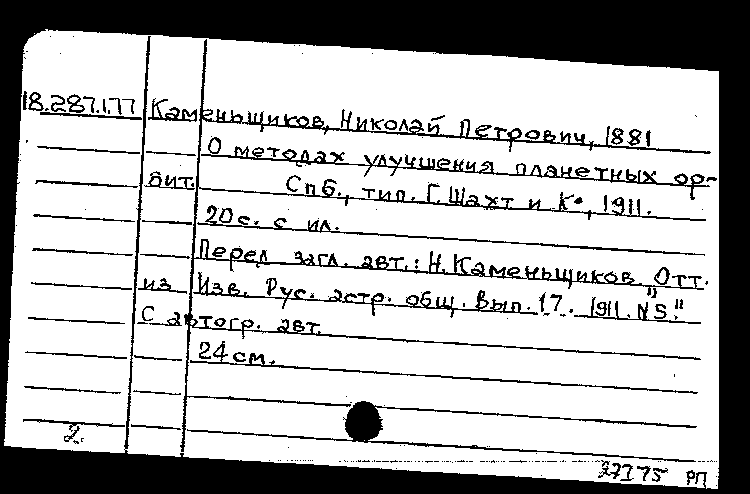 18.287.177 Каменьщиков, Николай Петрович, 1881
О методах улучшения планетных ор-
бит. Спб., тип. Г. Шахт и К°, 1911.
20 с. с ил.
Перед загл. авт.: Н. Каменьщиков Отт.
из Изв. Рус. астр. общ. Вып. 17. 1911. N "5."
С автогр. авт.
24 см.
2.
РП